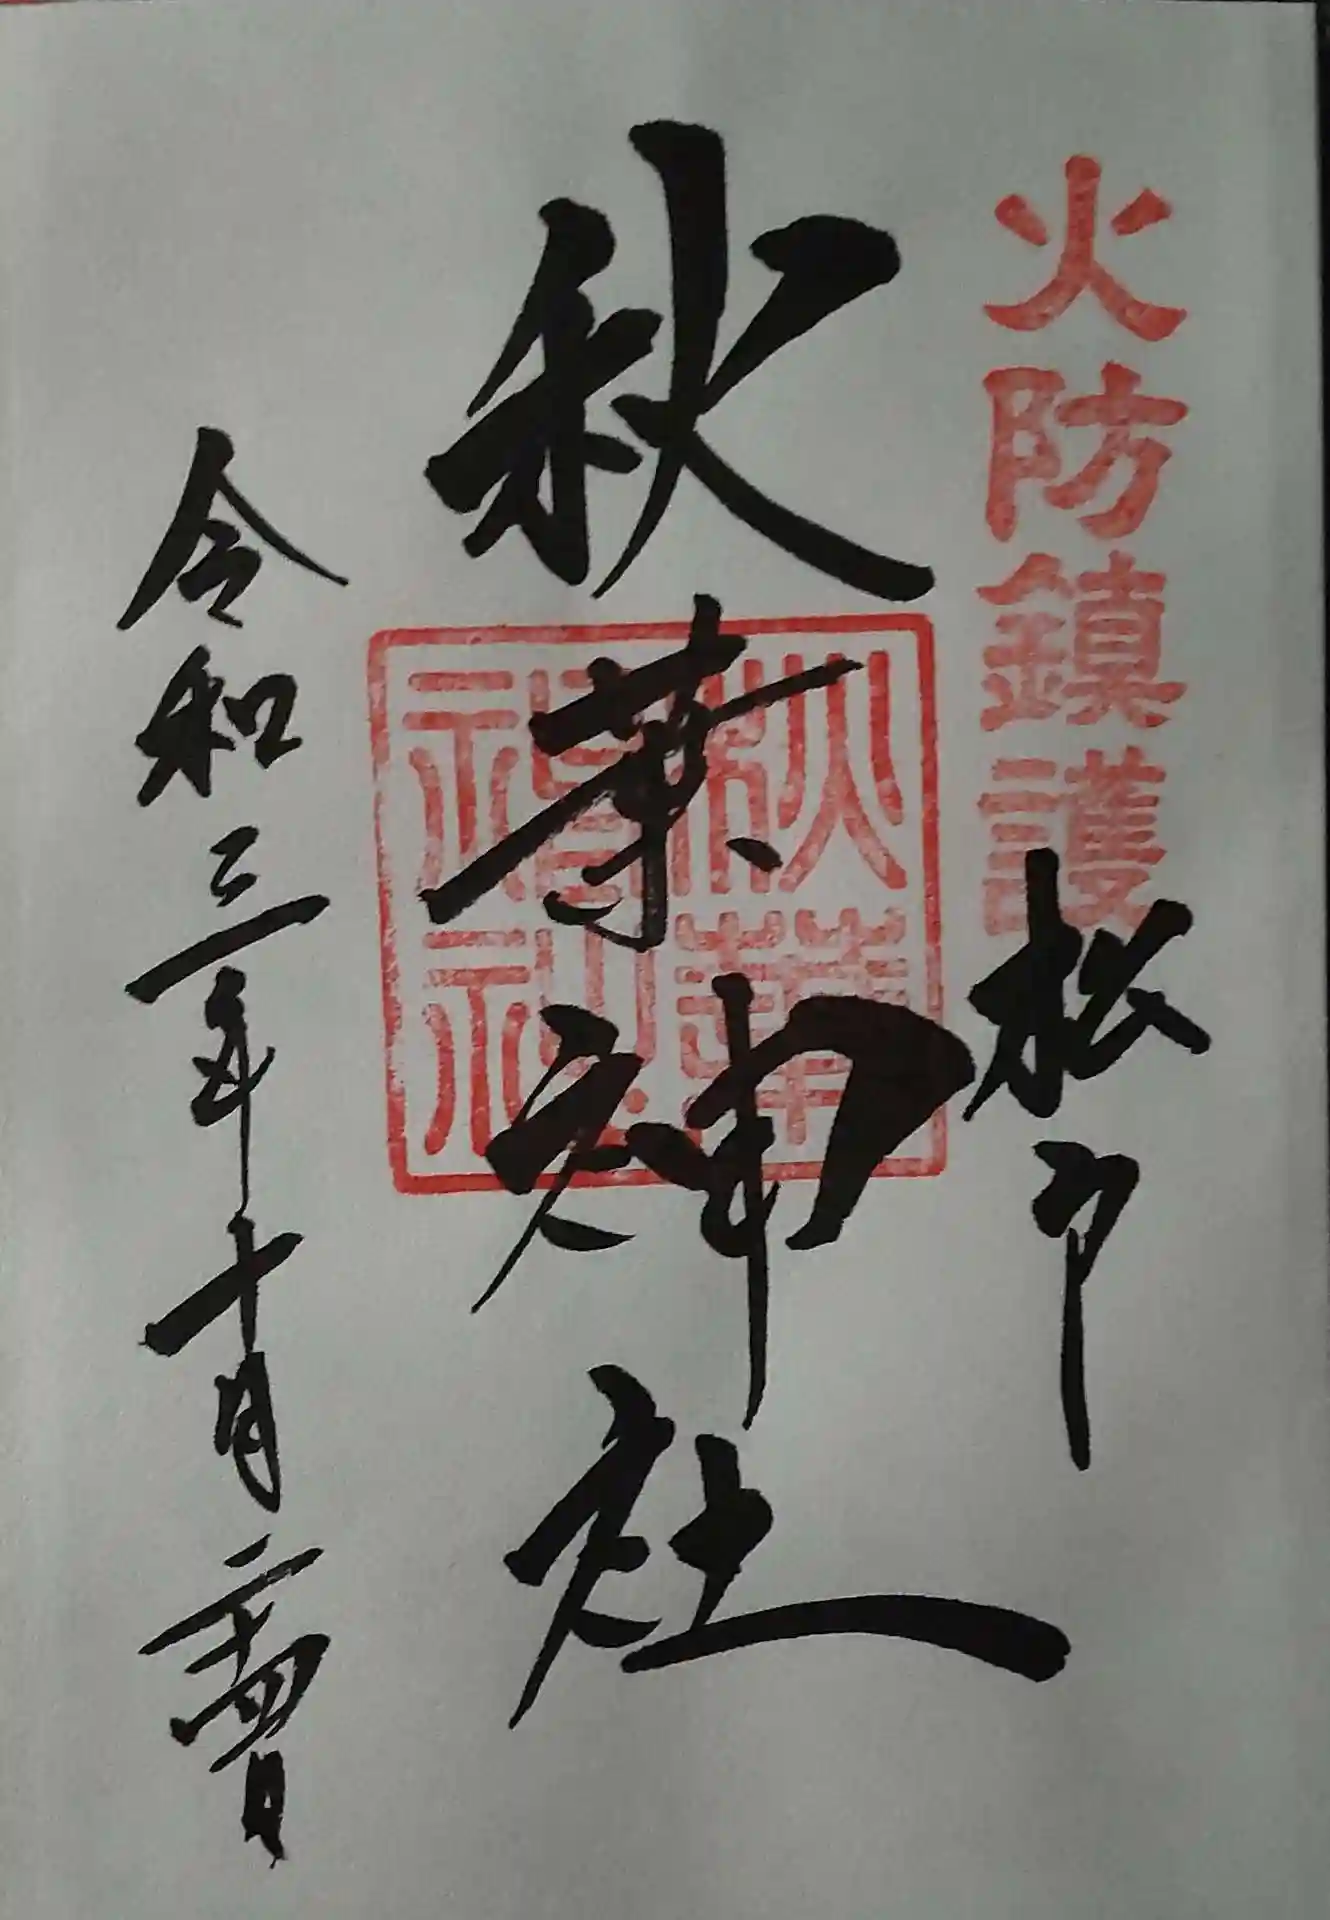 火防鎮護
松
秋葉神社
秋葉神社
令和三年十月二十四日